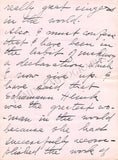 really great singers
in the world.
Also I must confess
that I have been in
the habit, making
a declaration, which
I now give up. I
have said that
Schumann - Heink
was the greatest wo-
man in the world
because she had
successfully accom-
plished the work of